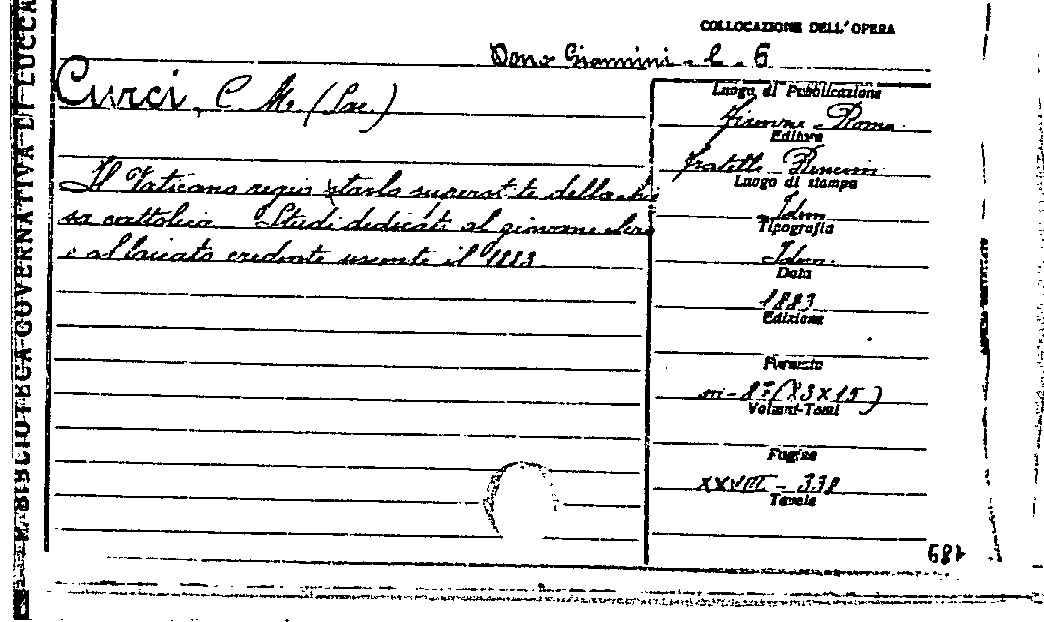 R. BIBLIOTECA GOVERNATIVA DI LUCCA
COLLOCAZIONE DELL'OPERA
Dono Giannini - C - 6
Curci, C. M. (Sac.)
Il Vaticano regio tarlo superstite della chie
sa cattolica. Studi dedicati al giovane clero
e al laicato credente uscente il 1883
Luogo di Pubblicazione
Firenze - Roma
Editore
Fratelli Bencini
Luogo di stampa
Idem
Tipografia
Idem
Data
1883
Edizione
Formato
in-8° (23 x 15)
Volumi-Tomi
Pagine
XXVIII - 338
Tavole